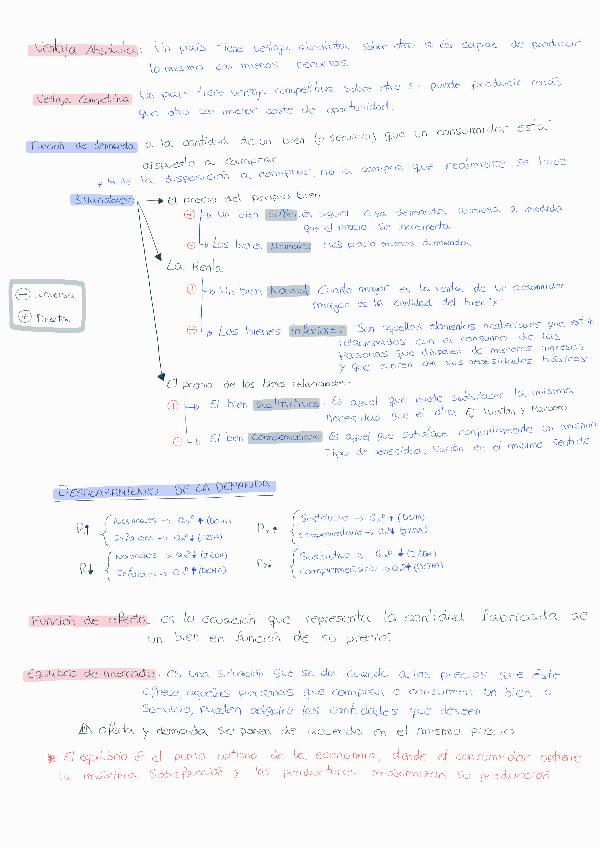 Ventaja Absoluta: Un país tiene ventaja absoluta sobre otro si es capaz de producir
lo mismo con menos recursos.
Ventaja Competitiva Un país tiene ventaja competitiva sobre otro si puede producir más
que otro con menor coste de oportunidad.
Función de demanda a la cantidad de un bien (o servicio) que un consumidor está
dispuesto a comprar
la disposición a comprar, no la compra que realmente se hace
3 Variables El precio del propio bien
Un bien es aquel cuya demanda aumenta a medida
que el precio se incrementa
Los bienes Normales más precio menos demanda
La Renta
Un bien Normal Cuanto mayor es la renta de un consumidor
mayor es la cantidad del bien "x"
⊖ inversa
⊕ Directa
Los bienes inferiores Son aquellos elementos materiales que están
relacionados con el consumo de las
personas que disponen de menores ingresos
y que cubren con sus necesidades básicas
El precio de los bienes relacionados.
El bien sustitutivos. Es aquel que puede satisfacer la misma
necesidad que el otro Ej
El bien Complementario Es aquel que satisface conjuntamente un mismo
tipo de necesidad, varían en el mismo sentido
DESPLAZAMIENTO DE LA DEMANDA
R↑ Normales → ↑ (DCHA)
Inferiores → ↓ (IZDA)
R↓ Normales → ↓ (IZDA)
Inferiores → ↑ (DCHA)
↑ Sustitutivo → ↑ (DCHA)
complementario → ↓ (IZDA)
↓ Sustitutivo → ↓ (IZDA)
complementario → ↑ (DCHA)
Función de oferta es la ecuación que representa la cantidad fabricada de
un bien en función de su precio.
Equilibrio de mercado: es una situación que se da cuando a los precios que éste
ofrece, aquellas personas que compran o consumen un bien o
servicio, pueden adquirir las cantidades que deseen
⚠ oferta y demanda se ponen de acuerdo en el mismo precio
* El equilibrio es el punto optimo de la economía, donde el consumidor obtiene
la máxima satisfacción y los productores maximizan su producción